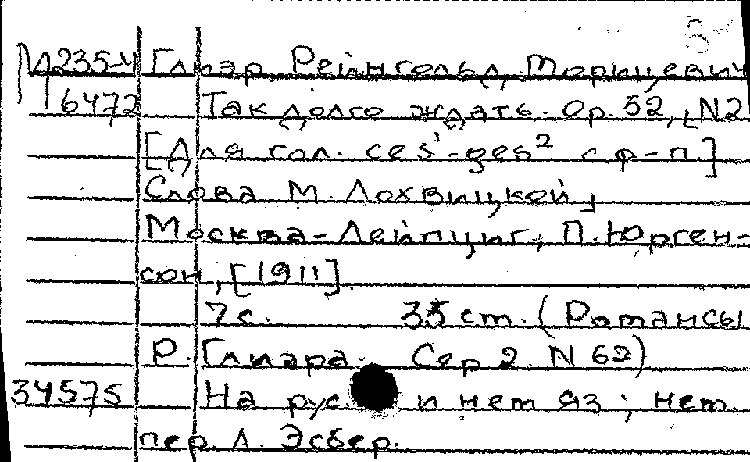 М235-4 Глиэр Рейнгольд Морицевич
6472 Так долго ждать. Ор. 52, [N2
[Для гол. ces¹-ges² с ф-п.]
Слова М. Лохвицкой,
Москва-Лейпциг, П. Юрген-
сон, [1911]
7 с. 35 ст. (Романсы
Р. Глиэра. Сер 2 N 62)
34575 На рус. и нем яз; нем
пер. Л. Эсбер.